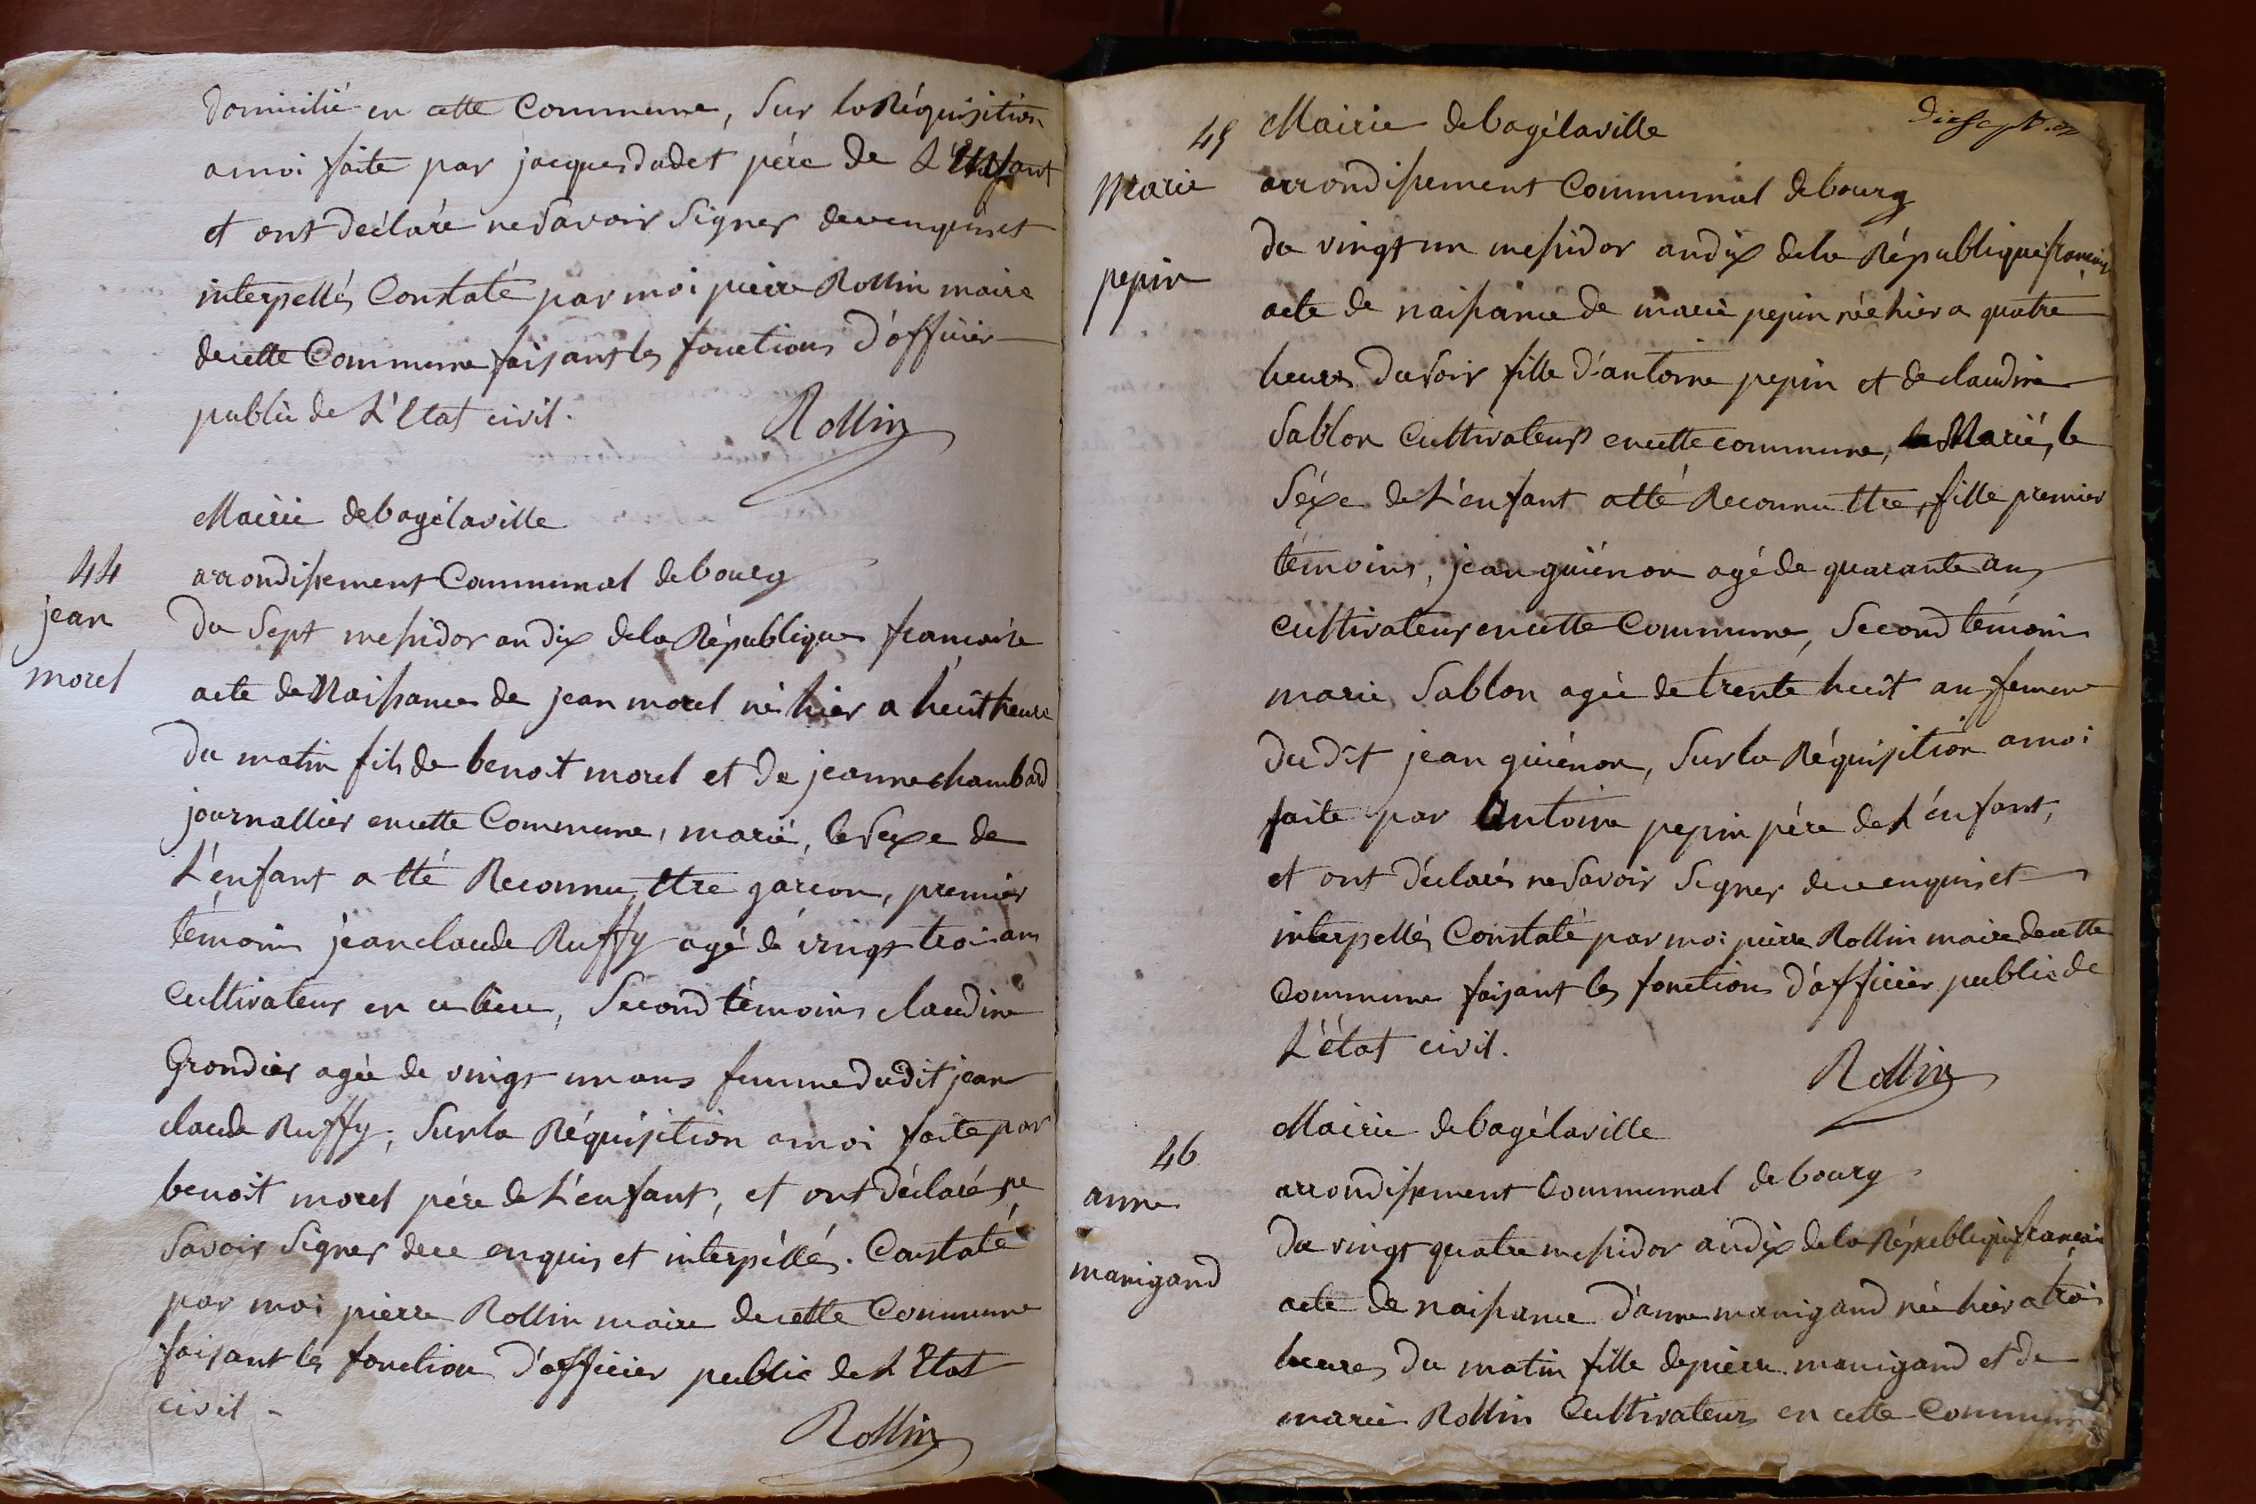 Domicilié en cette Commune, Sur la Réquisition
a moi faite par jacques dadet pére de L'Enfant
et ont déclaré ne Savoir Signer de ce enquis et
interpellés Constaté par moi pierre Rollin maire
de cette Commune faisant les fonctions d'officier
public de L'Etat civil.
Rollin
Mairie de bagélaville
44
arrondissement Communal de bourg
jean
du Sept messidor an dix de la République francaise
morel
acte de Naissance de jean morel né hier a huit heure
du matin fils de benoit morel et de jeanne chambard
journallier en cette Commune, marié, le Sexe de
L'enfant a tté Reconnu ttre garcon, premier
témoins jean claude Ruffy agé de vingt trois ans
Cultivateur en ce lieu, Second témoins claudine
Grondier agée de vingt un ans femme dudit jean
claude Ruffy; Sur la Réquisition a moi faite par
benoit morel pére de L'enfant, et ont déclaré ne
Savoir Signer de ce enquis et interpéllés. Constaté
par moi pierre Rollin maire de cette Commune
faisant les fonction d'officier public de L'Etat
civil -
Rollin
dix sept
45
Mairie de bagélaville
Marie
arrondissement Communal de bourg
pepin
du vingt un messidor an dix de la République francaise
acte de naissance de marie pepin née hier a quatre
heures du Soir fille d'antoine pepin et de claudine
Sablon Cultivateurs en cette commune, Mariés, le
Séxe de L'enfant a tté Reconnu ttre fille premier
témoins, jean guiénon agé de quarante ans
Cultivateur en cette Commune, Second témoin
marie Sablon agée de trente huit ans femme
du dit jean guiénon, Sur la Réquisition a moi
faite par Antoine pepin pére de L'énfant,
et ont déclarés ne Savoir Signer de ce enquis et
interpellés Constaté par moi pierre Rollin maire de cette
Commune faisant les fonctions d'officier public de
L'état civil.
Rollin
Mairie de bagélaville
46
arrondissement Communal de bourg
anne
du vingt quatre messidor an dix de la République francaise
manigand
acte de naissance d'anne manigand née hier a trois
heures du matin fille de pierre manigand et de
marie Rollin Cultivateurs en cette Commune